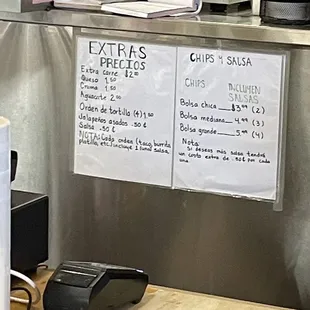 EXTRAS
PRECIOS
Extra carne $2.00
Queso 1.50
Crema 1.50
Aguacate 2.00
Orden de tortilla (4) 1.50
Jalapeños asados .50 ¢
Salsa .50 ¢
NOTA: Cada orden (taco, burrito
platillo, etc.) incluye 1 salsa
CHIPS Y SALSA
CHIPS INCLUYEN
SALSAS
Bolsa chica $3.99 (2)
Bolsa mediana 4.99 (3)
Bolsa grande 5.99 (4)
Nota:
Si deseas más salsa tendrá
un costo extra de .50¢ por cada
una.